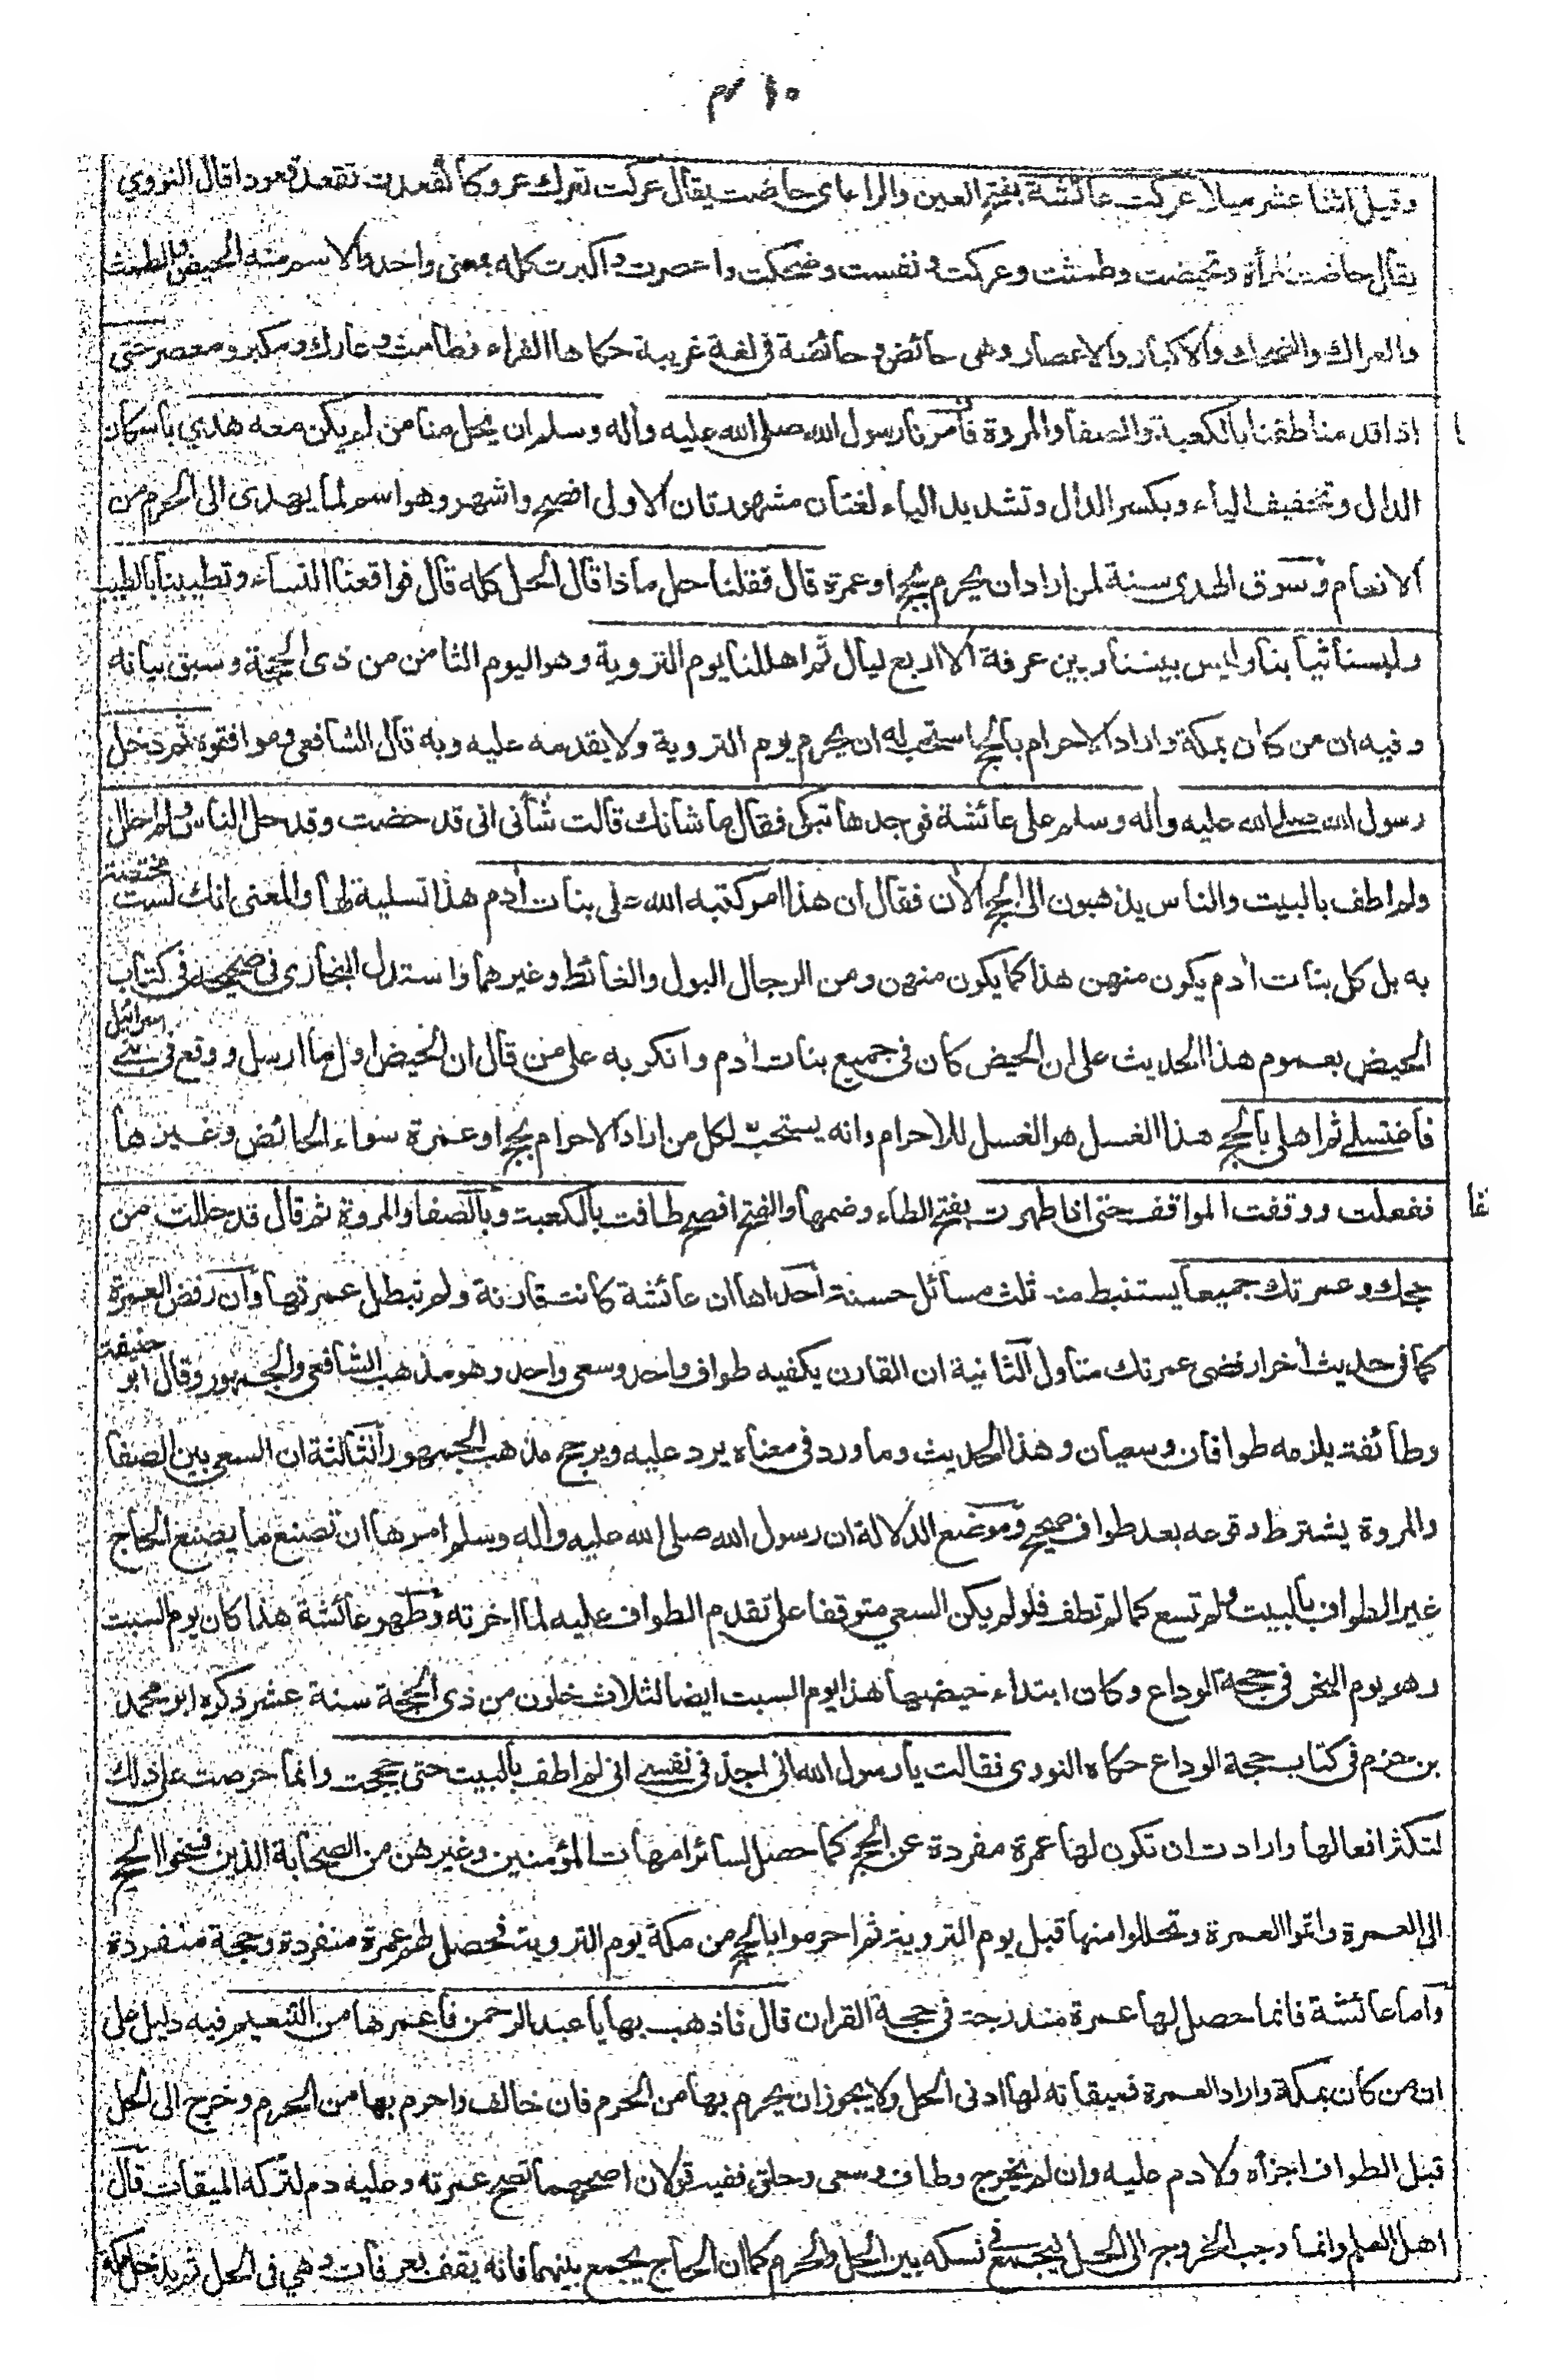 وقيل اثنا عشر ميلا عركت عائشة بفتح العين والراء اى حاضت يقال عركت تعرك عروكا كقعدت تقعد قعودا قال النووي
يقال حاضت المرأة وتحيضت وطمثت وعركت ونفست وضحكت واعصرت واكبرت كله بمعنى واحد والاسم منه الحيض والطمث
والعراك والضحك والاكبار والاعصار وهى حائض وحائضة فى لغة غريبة حكاها الفراء وطامث وعارك ومكبر ومعصر حتى
اذا قدمنا طفنا بالكعبة والصفا والمروة فأمرنا رسول الله صلى الله عليه واله وسلم ان يحل منا من لم يكن معه هدي باسكان
الدال وتخفيف الياء وبكسر الدال وتشديد الياء لغتان مشهورتان الاولى افصح واشهر وهو اسم لما يهدى الى الحرم من
الانعام وسوق الهدى سنة لمن اراد ان يحرم بحج او عمرة قال فقلنا حل ماذا قال الحل كله قال فواقعنا النساء وتطيبنا بالطيب
ولبسنا ثيابنا وليس بيننا وبين عرفة الا اربع ليال ثم اهللنا يوم التروية وهو اليوم الثامن من ذى الحجة وسبق بيانه
وفيه ان من كان بمكة واراد الاحرام بالحج استحب له ان يحرم يوم التروية ولا يقدمه عليه وبه قال الشافعي وموافقوه ثم دخل
رسول الله صلى الله عليه واله وسلم على عائشة فوجدها تبكى فقال ما شانك قالت شأنى انى قد حضت وقد حل الناس ولم احلل
ولم اطف بالبيت والناس يذهبون الى الحج الآن فقال ان هذا امر كتبه الله على بنات ادم هذا تسلية لها والمعنى انك لست مختصة
به بل كل بنات ادم يكون منهن هذا كما يكون منهن ومن الرجال البول والغائط وغيرهما واستدل البخارى فى صحيحه فى كتاب
الحيض بعموم هذا الحديث على ان الحيض كان فى جميع بنات ادم وانكر به على من قال ان الحيض اول ما ارسل ووقع فى بنى اسرائيل
فاغتسلى ثم اهلى بالحج هذا الغسل هو الغسل للاحرام وانه يستحب لكل من اراد الاحرام بحج او عمرة سواء الحائض وغيرها
ففعلت ووقفت المواقف حتى اذا طهرت بفتح الطاء وضمها والفتح افصح طافت بالكعبة وبالصفا والمروة ثم قال قد حللت من
حجك وعمرتك جميعا يستنبط منه ثلث مسائل حسنة احداها ان عائشة كانت قارنة ولم تبطل عمرتها وان رفض العمرة
كما فى حديث أخر ارفضى عمرتك متأول الثانية ان القارن يكفيه طواف واحد وسعى واحد وهو مذهب الشافعى والجمهور وقال ابو حنيفة
وطائفة يلزمه طوافان وسعيان وهذا الحديث وما ورد فى معناه يرد عليه ويرجح مذهب الجمهور الثالثة ان السعى بين الصفا
والمروة يشترط وقوعه بعد طواف صحيح وموضع الدلالة ان رسول الله صلى الله عليه واله وسلم امرها ان تصنع ما يصنع الحاج
غير الطواف بالبيت ولم تسع كما لم تطف فلو لم يكن السعي متوقفا على تقدم الطواف عليه لما اخرته وطهر عائشة هذا كان يوم السبت
وهو يوم النحر فى حجة الوداع وكان ابتداء حيضها هذا يوم السبت ايضا لثلاث خلون من ذى الحجة سنة عشر ذكره ابو محمد
بن حزم فى كتاب حجة الوداع حكاه النووى فقالت يا رسول الله انى اجد فى نفسى انى لم اطف بالبيت حتى حججت وانما حرصت على ذلك
لتكثر افعالها وارادت ان تكون لها عمرة مفردة عن الحج كما حصل لسائر امهات المؤمنين وغيرهن من الصحابة الذين فسخوا الحج
الى العمرة واتموا العمرة وتحللوا منها قبل يوم التروية ثم احرموا بالحج من مكة يوم التروية فحصل لهم عمرة منفردة وحجة منفردة
واما عائشة فانما حصل لها عمرة مندرجة فى حجة القران قال فاذهب بها يا عبد الرحمن فاعمرها من التنعيم فيه دليل على
ان من كان بمكة واراد العمرة فميقاته لها ادنى الحل ولا يجوز ان يحرم بها من الحرم فان خالف واحرم بها من الحرم وخرج الى الحل
قبل الطواف اجزأه ولا دم عليه وان لم يخرج وطاف وسعى وحلق ففيه قولان اصحهما تصح عمرته وعليه دم لتركه الميقات قال
اهل العلم وانما وجب الخروج الى الحل ليجمع فى نسكه بين الحل والحرم كما ان الحاج يجمع بينهما فانه يقف بعرفات وهي فى الحل ثم يدخل مكة